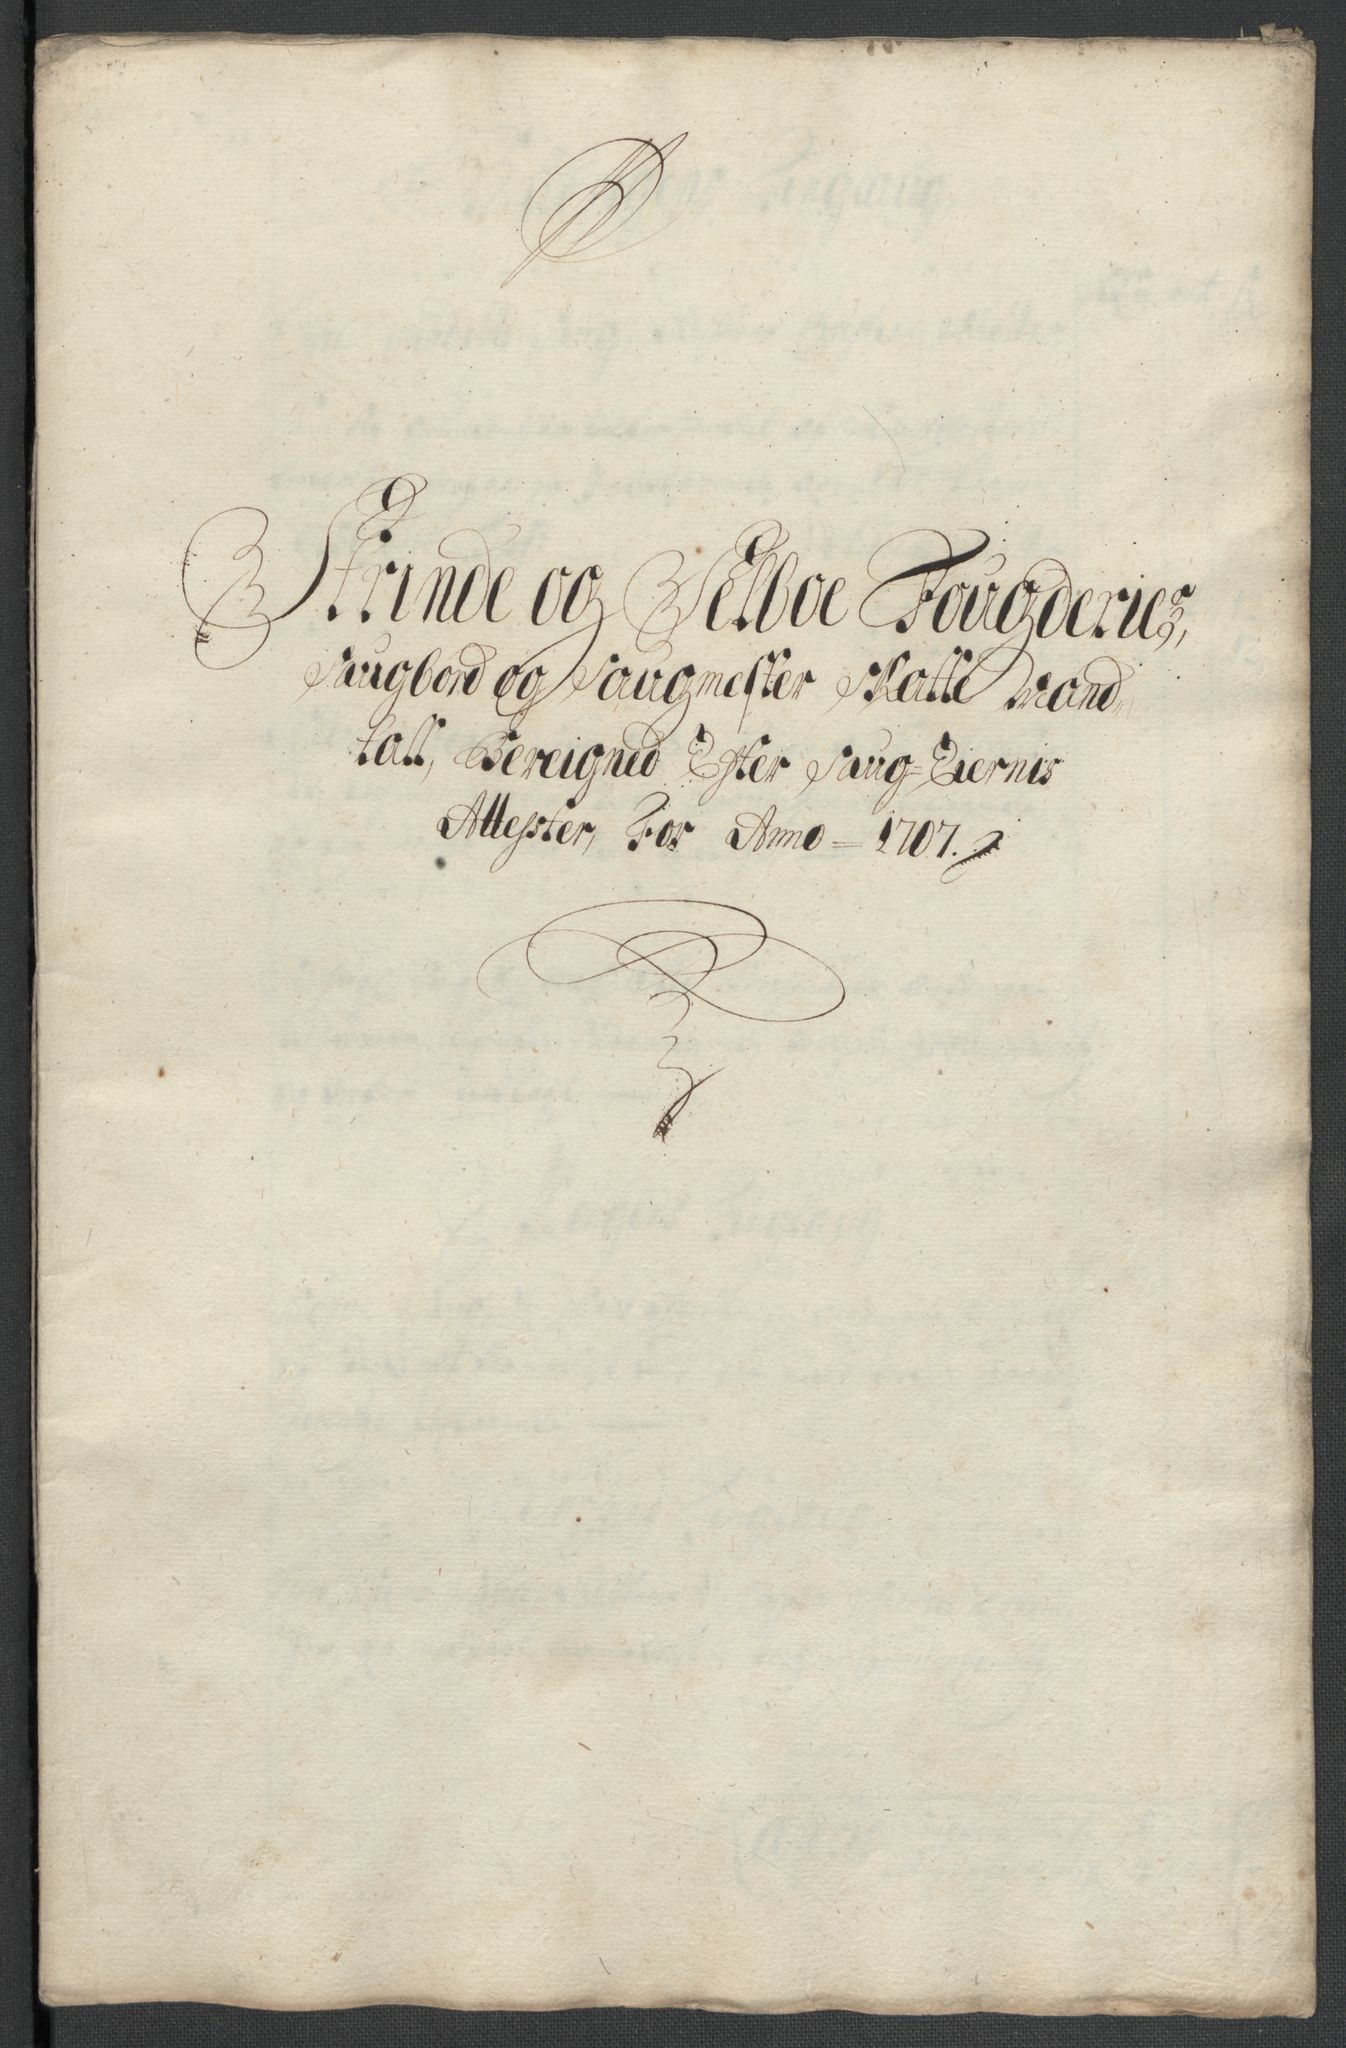 Strinde og Selboe Fougderies,
Saugbord og Saugmester Skatte Mand„
tall, Bereigned Efter Saug-Eiernis
Attester, For Anno = 1707.